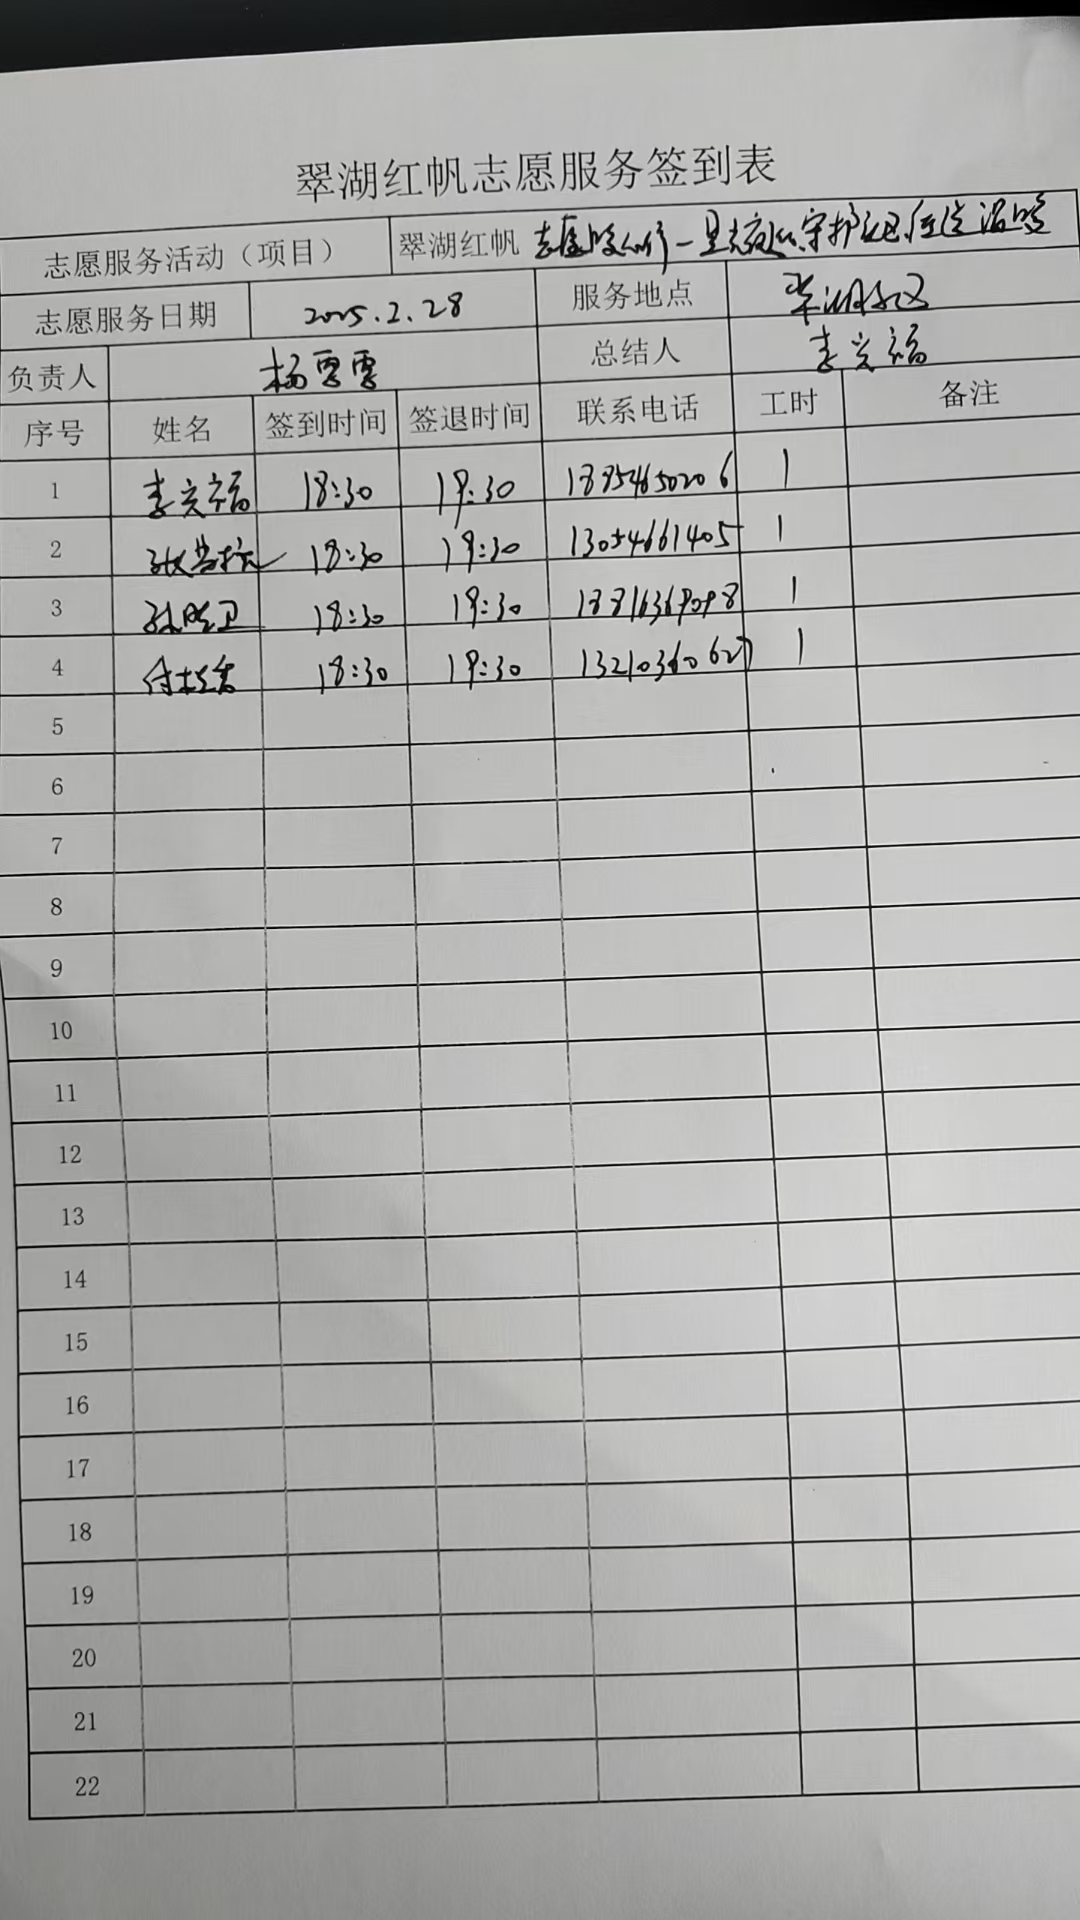 翠湖红帆志愿服务签到表
志愿服务活动（项目） 翠湖红帆 志愿
志愿服务日期 2025.2.28 服务地点 翠湖社区
负责人 杨雪雪 总结人 李立福
序号 姓名 签到时间 签退时间 联系电话 工时 备注
1 李立福 18:30 19:30 18854650206 1
2 18:30 19:30 13054661405 1
3 孙晓卫 18:30 19:30 1
4 18:30 19:30 1
5
6
7
8
9
10
11
12
13
14
15
16
17
18
19
20
21
22